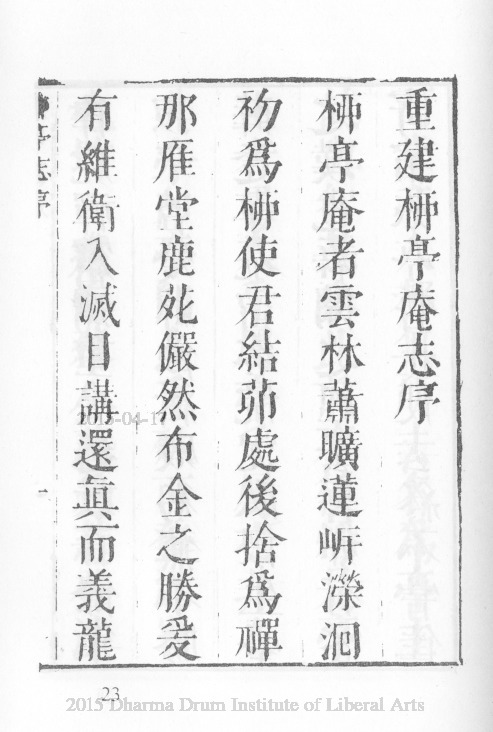 重建栁亭庵志序
栁亭庵者雲林蕭曠蓮㟁濚洄
初爲栁使君結茆處後捨爲禪
那雁堂鹿苑儼然布金之勝爰
有維衛入滅日講還眞而義龍
亭志序
一
2015-04-17
23
2015 Dharma Drum Institute of Liberal Arts